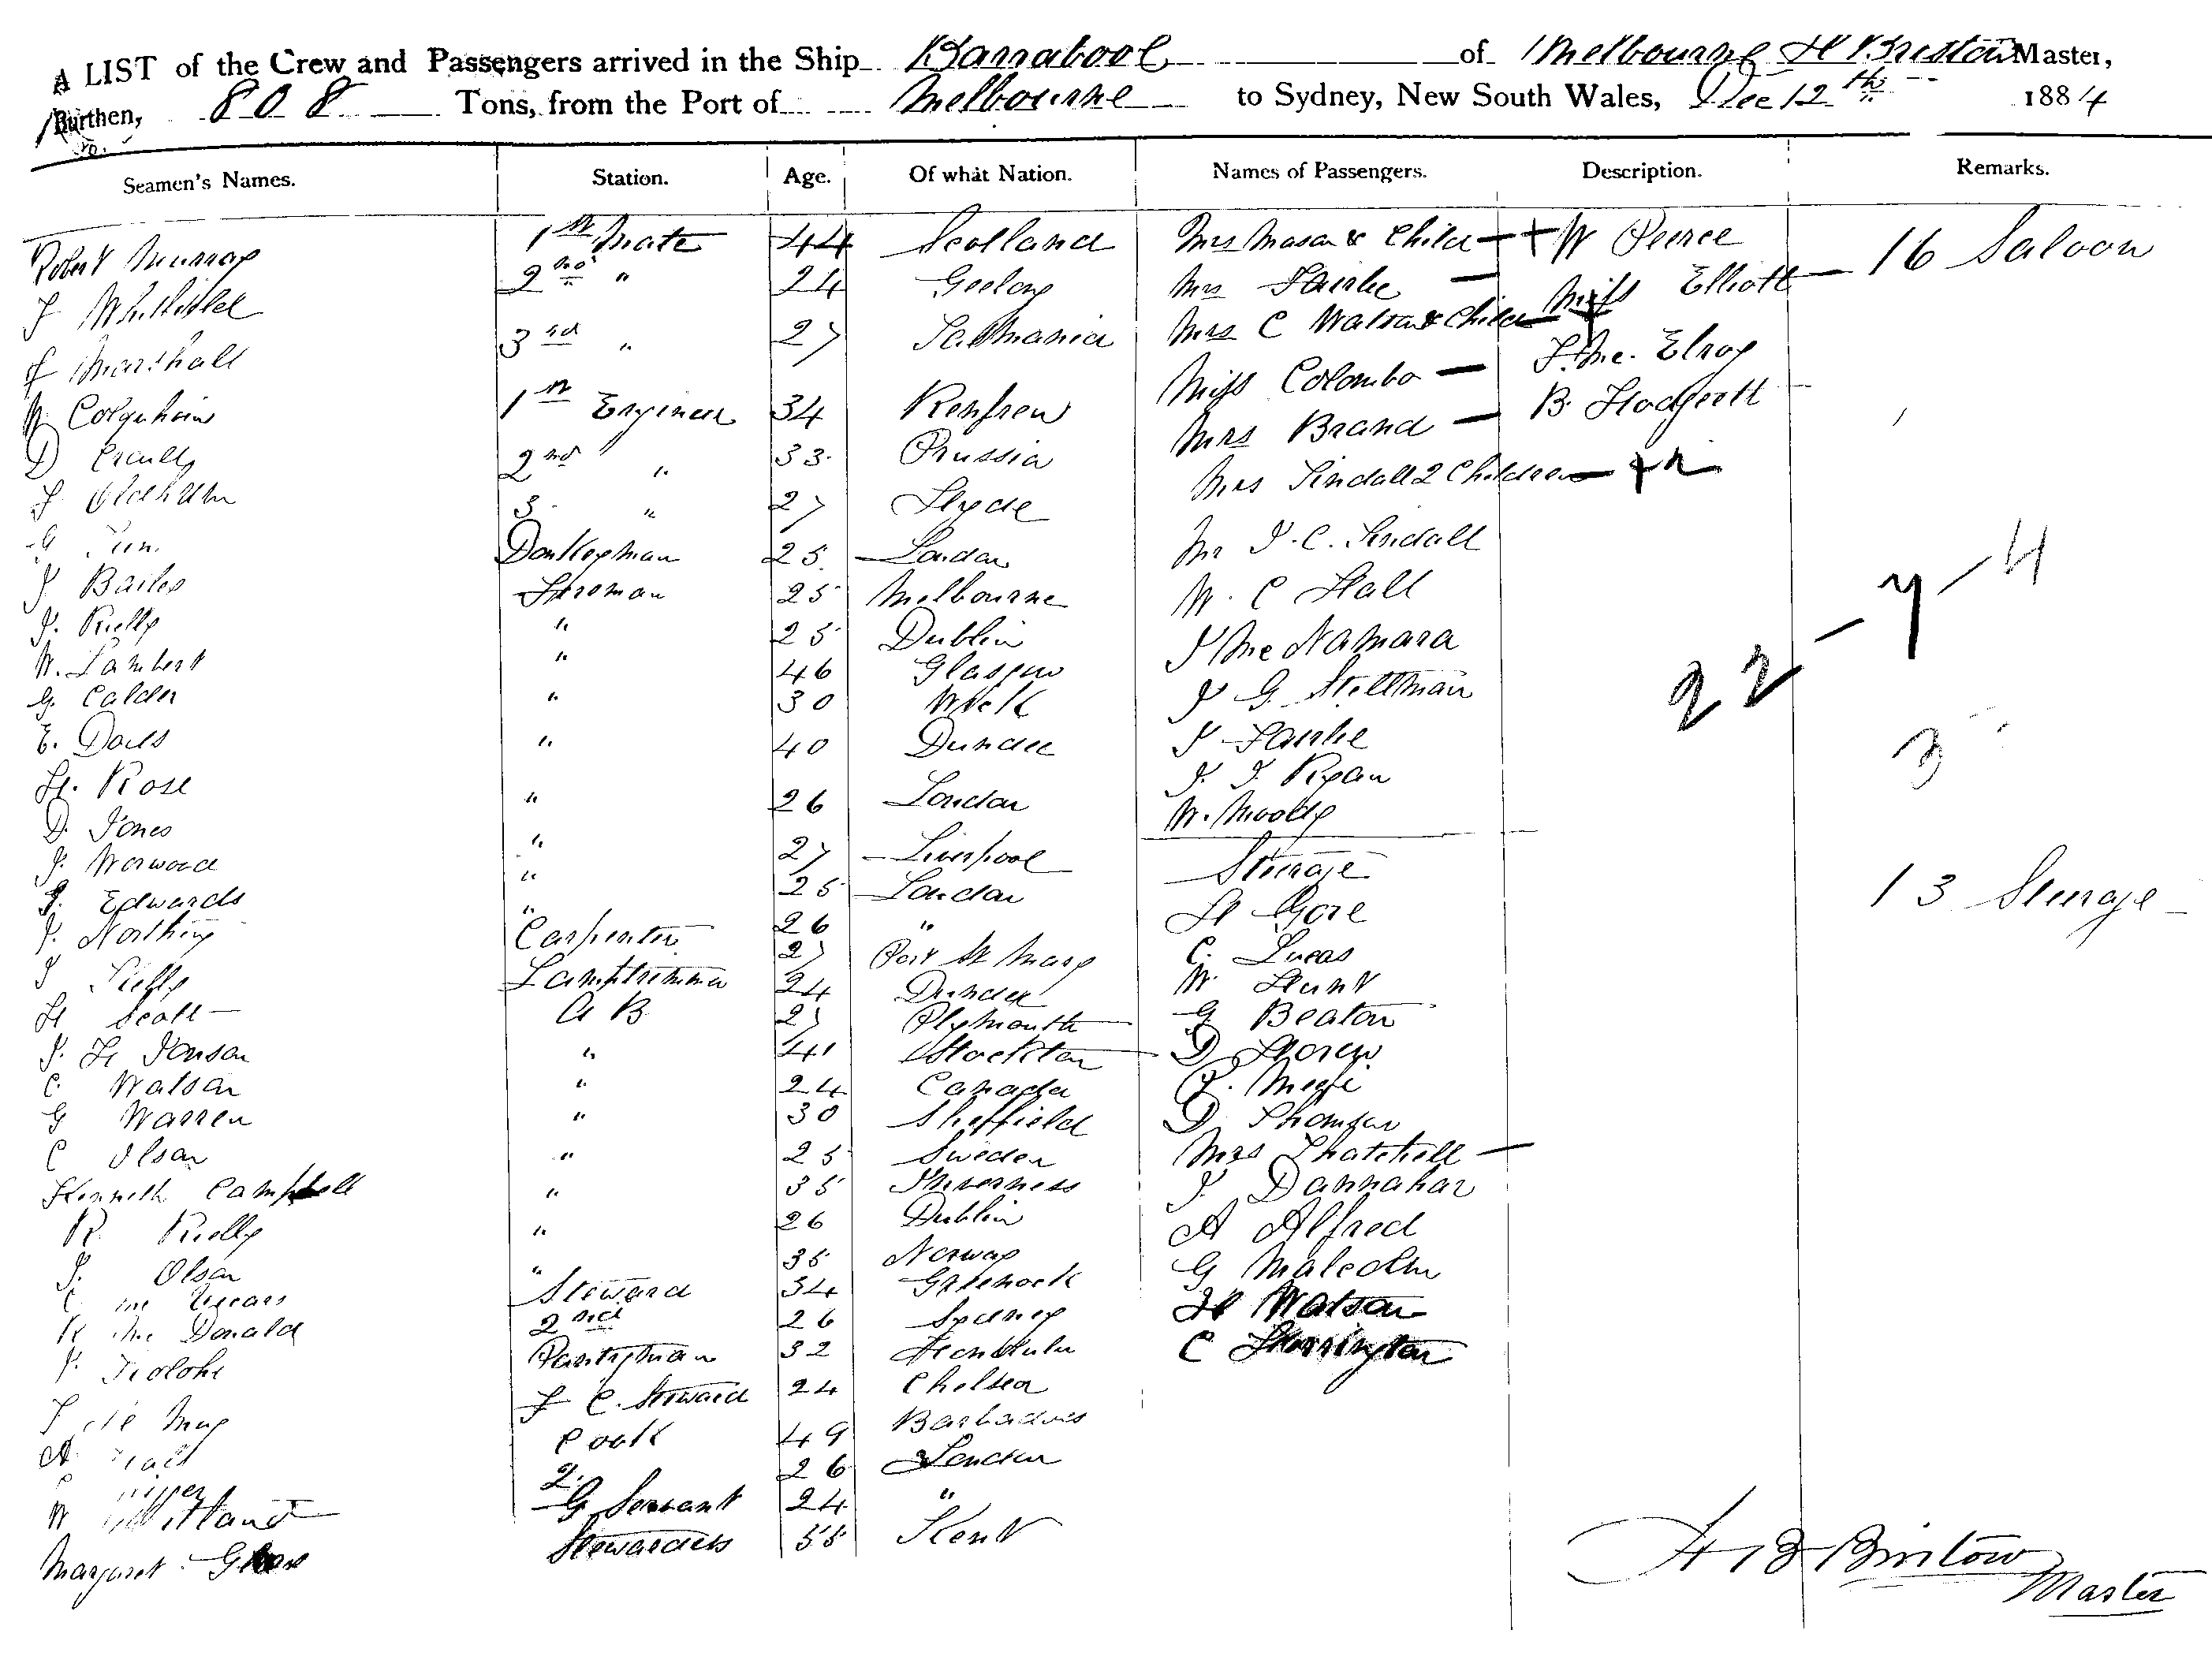 A LIST of the Crew and Passengers arrived in the Ship Barrabool of Melbourne H Bristow Master,
Burthen, 808 Tons, from the Port of Melbourne to Sydney, New South Wales, Dec 12th 1884
Seamen's Names. Station. Age. Of what Nation. Names of Passengers. Description. Remarks.
Robert Murray 1st Mate 44 Scotland Mrs Mason & Child W Peirce 16 Saloon
J 2nd " 24 Geelong Mrs Fairlie Miss Elliott
J Marshall 3rd " 27 Tasmania Mrs C Watson & Child J. Mc. Elroy
W Colquhoun 1st Engineer 34 Renfrew Miss Colombo B. Hodgett
D 2nd " 33 Prussia Mrs Brand
J Oldham 3 " 27 Hyde Mrs Tindall 2 Children
G Donkeyman 25 London Mr J. C. Tindall
J Bailes Fireman 25 Melbourne W. C Hall
J. Rielly " 25 Dublin J Mc Namara
W. Lambert " 46 Glasgow J G Stillman
G. Calder " 30 Wick J Fairlie
E. Davis " 40 Dundee J. J. Ryan
H. Rose " 26 London W. Moody
D. Jones " 27 Liverpool Steerage
J. Norwood " 25 London H Gore 13 Steerage
J. Edwards " 26 " C. Lucas
J. Northing Carpenter 27 Port St Mary W. Hunt
J Lamptrimmer 24 Dundee G Beaton
H Scott A B 27 Plymouth D
J. H Jonson " 41 Stockton
C. Watson " 24 Canada D Thomson
G Warren " 30 Sheffield Mrs Thatchell
C Olson " 25 Sweden J. Dannahar
Kenneth Campbell " 35 Inverness A Alfred
R. Rielly " 26 Dublin G Malcolm
J. Olson " 35 Norway H Watson
C Steward 34 Greenock C Thorrington
R Mc Donald 2nd 26 Sydney
J. Pantryman 32 Honolulu
J May F C. Steward 24 Chelsea
A Cook 49 Barbadoes
2. 26 London
W G Servant 24 "
Margaret Stewardess 55 Kent
22 - 7 - 4
3
H B Bristow
Master